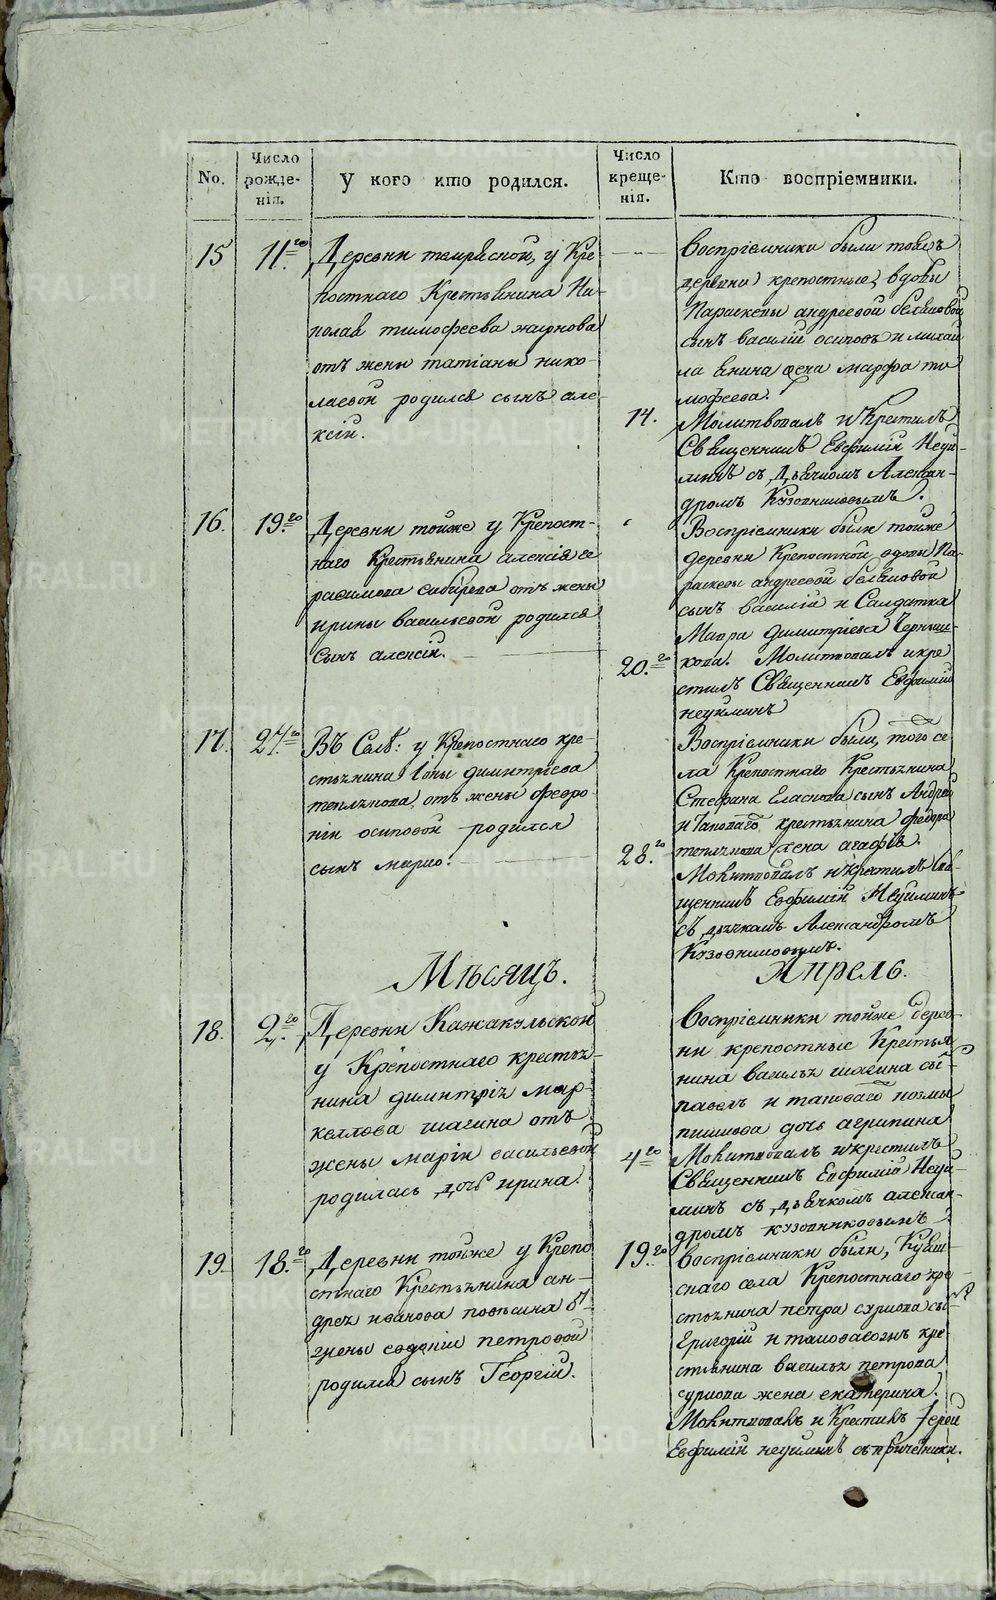 No.
Число рожде-нія.
У кого кто родился.
Число креще-нія.
Кто воспріемники.
15
11.го
Деревни у Кре
постнаго Крестьянина Ни
колая тимофеева жирнова
отъ жены татіаны нико-
лаевой родился сынъ але-
ксій.
14.
воспріемники были тояжъ
деревни крепостные, вдовы
Параскевы андреевой бѣляковой
сынъ василій осиповъ и михаи
ла жена марфа ти
мофеева.
Молитвовалъ и Крестилъ
Священникъ Евфимій Неуй-
минъ съ Дьячкомъ Алексан-
дромъ Кузовниковымъ.
16.
19.го
Деревни тойже у Крепост-
наго Крестьянина алексія ге
расимова сибирева отъ жены
ирины васильевой родился
сынъ алексій.
20.го
Воспріемники были тойже
деревни Крепостной вдовы Па-
раскевы андреевой бѣляковой
сынъ василій и Салдатка
Мавра димитріева Черныш-
кова. Молитвовалъ и кре
стилъ Священникъ Евфимій
неуйминъ
17.
27.го
Въ Селѣ: у Крепостнаго кре-
стьянина Іоны димитріева
теплякова, отъ жены февро-
ніи осиповой родился
сынъ марко.
28.го
Воспріемники были, того се
ла Крепостнаго Крестьянина
Стефана сынъ Андрей
и таковаго крестьянина федора
теплякова жена агафія.
Молитвовалъ и крестилъ Свя-
щенникъ Евфимій Неуйминъ
съ дьячкомъ Александромъ
Кузовниковымъ.
Мѣсяцъ. Апрель.
18.
2.го
Деревни Кажакульской
у Крепостнаго крестья-
нина димитрія мар-
келлова шагина отъ
жены маріи васильевой
родилась дочь ирина.
4.го
Воспріемники тойже дерев-
ни крепостные Крестья
нина василья шагина сы
павелъ и таковаго козмы
пишкова дочь агрипина
Молитвовалъ и крестилъ
Священникъ Евфимій Неуй-
минъ съ дьячкомъ алексан-
дромъ кузовниковымъ
19.
18.го
Деревни тойже у Крепо
стнаго Крестьянина ан-
дрея иванова повъсина о
жены петровой
родился сынъ Георгій.
19.го
воспріемники были,
скаго села Крепостнаго кре
стьянина петра сурнова сы
Григорій и таковагожъ кре
стьянина василья петрова
сурнова жена екатерина.
Молитвовавъ и Крестивъ Іерей
Евфимій неуйминъ съ причетники.